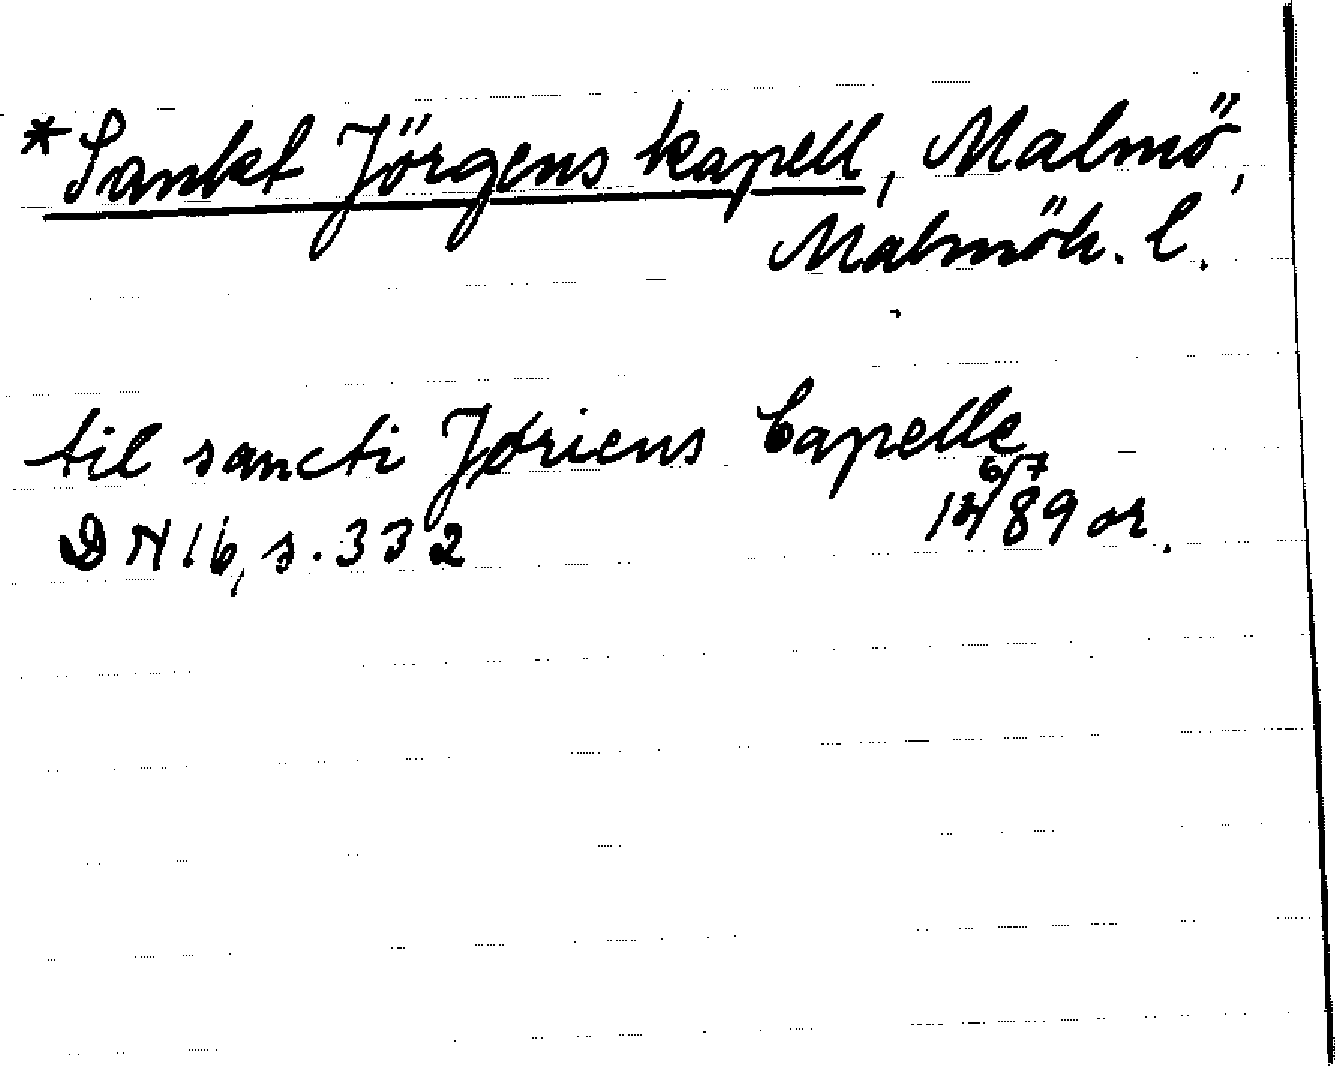 *Sankt Jörgens kapell, Malmö,
Malmöh. l.
til sancti Jøriens Capelle
DN 16, s. 332 14 6/7 89 or.